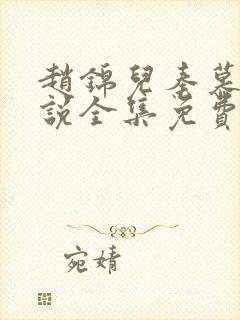 趙錦兒秦慕
說全集免費
宛婧